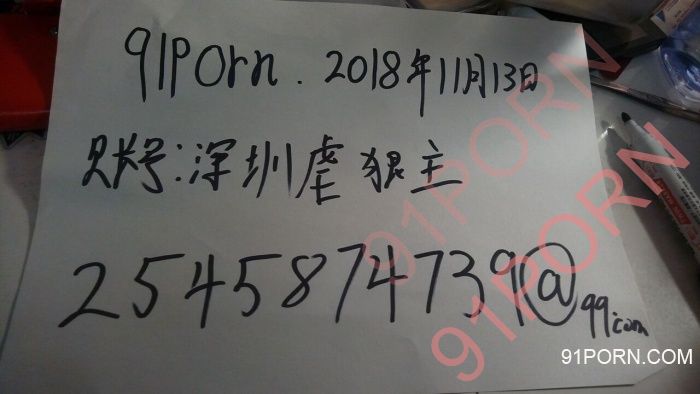 91porn. 2018年11月13日
账号:深圳虐狠主
2545874739@qq.com
91PORN
91PORN
91PORN.COM